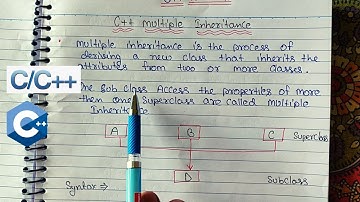 C++ Multiple Inheritance
Multiple Inheritance is the process of
deriving a new class that inherits the
attributes from two or more classes.
C/C++
One Sub class Access the properties of more
them one Superclass are called multiple
Inheritance
A B C Superclass
D
Syntax ⇒ Subclass
C++